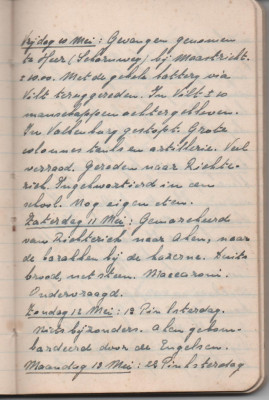 Vrijdag 10 Mei: Gevangen genomen
te Heer (Scharnweg) bij Maastricht.
± 10.00. Met de gehele batterij via
Vilt teruggereden. In Vilt ± 10
manschappen achtergebleven.
In Valkenburg gestopt. Grote
colonnes tanks en artillerie. Veel
verraad. Gereden naar Richte-
rich. Ingekwartierd in een
school. Nog eigen eten.
Zaterdag 11 Mei: Gemarcheerd
van Richterich naar Aken, naar
de barakken bij de kazerne. Duits
brood, net steen. Maccaroni.
Ondervraagd.
Zondag 12 Mei: 1e Pinksterdag.
Niets bijzonders. Aken gebom-
bardeerd door de Engelsen.
Maandag 13 Mei: 2e Pinksterdag